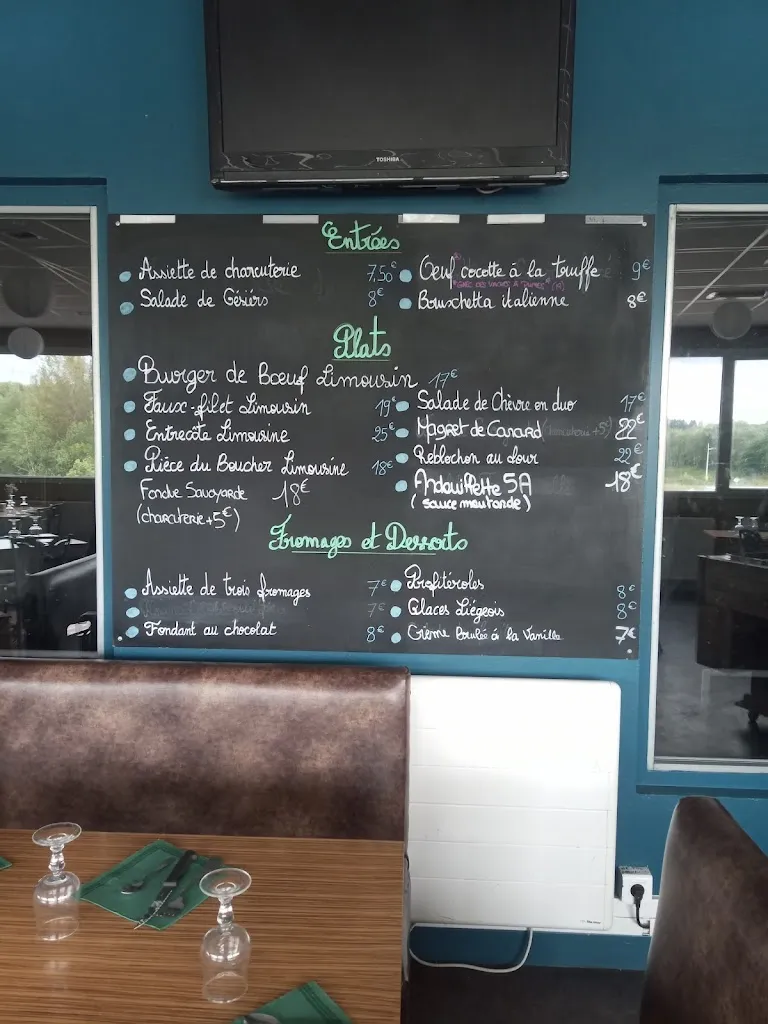 TOSHIBA
Entrées
Assiette de charcuterie 7,50€
Salade de Gésiers 8€
Oeuf cocotte à la truffe 9€
Bruschetta italienne 8€
Plats
Burger de Boeuf Limousin 17€
Faux-filet Limousin 19€
Entrecote Limousine 25€
Pièce du Boucher Limousine 18€
Fondue Savoyarde 18€
(charcuterie+5€)
Salade de Chèvre en duo 17€
Magret de Canard 22€
Reblochon au four 22€
Andouillette 5A 18€
(sauce moutarde)
Fromages et Desserts
Assiette de trois fromages 7€
7€
Fondant au chocolat 8€
Profitéroles 8€
Glaces Liégeois 8€
Crème brulée à la Vanille 7€